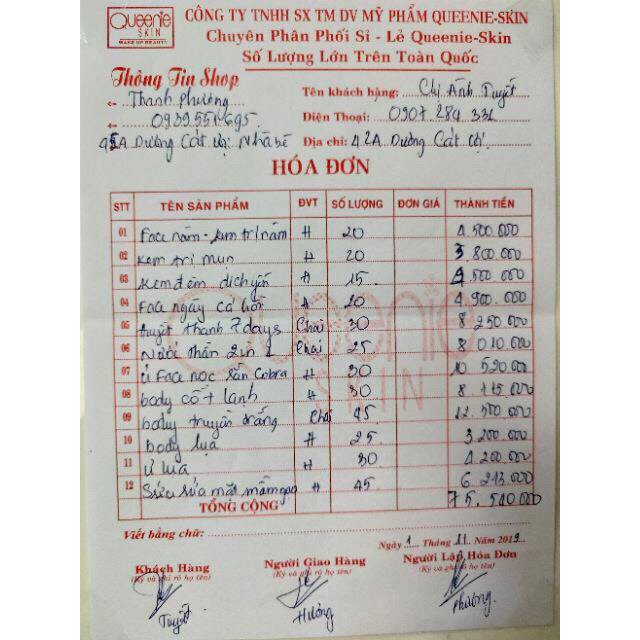 Queenie
SKIN
MAKE UP BEAUTY
CÔNG TY TNHH SX TM DV MỸ PHẨM QUEENIE-SKIN
Chuyên Phân Phối Sỉ - Lẻ Queenie-Skin
Số Lượng Lớn Trên Toàn Quốc
Thông Tin Shop
Thanh Phương
0939551695
Dương Cát Lợi Nhà bè
Tên khách hàng: Chị Ánh Tuyết
Điện Thoại: 0907 284 331
Địa chỉ: 42A Dương Cát Lợi
HÓA ĐƠN
STT TÊN SẢN PHẨM ĐVT SỐ LƯỢNG ĐƠN GIÁ THÀNH TIỀN
01 Face nám - kem trị nám H 20 4.500.000
02 Kem trị mụn H 20 3.800.000
03 Kem đêm dịch yến H 15 4.500.000
04 Face ngày cá hồi H 20 4.900.000
05 huyết thanh 7 days Chai 30 8.250.000
06 Nước thần 2in1 Chai 25 8.010.000
07 ủ Face nọc rắn Cobra H 30 10.520.000
08 body cốt lạnh H 30 8.715.000
09 body truyền trắng Chai 45 12.500.000
10 body lụa H 25 3.200.000
11 ủ lụa H 30 4.200.000
12 Sữa rửa mặt mầm gạo H 45 6.213.000
TỔNG CỘNG 75.540.000
Viết bằng chữ:
Ngày 1 Tháng 11 Năm 2019
Khách Hàng Người Giao Hàng Người Lập Hóa Đơn
(Ký và ghi rõ họ tên) (Ký và ghi rõ họ tên) (Ký và ghi rõ họ tên)
Tuyết Hương Phương
Queenie
SKIN